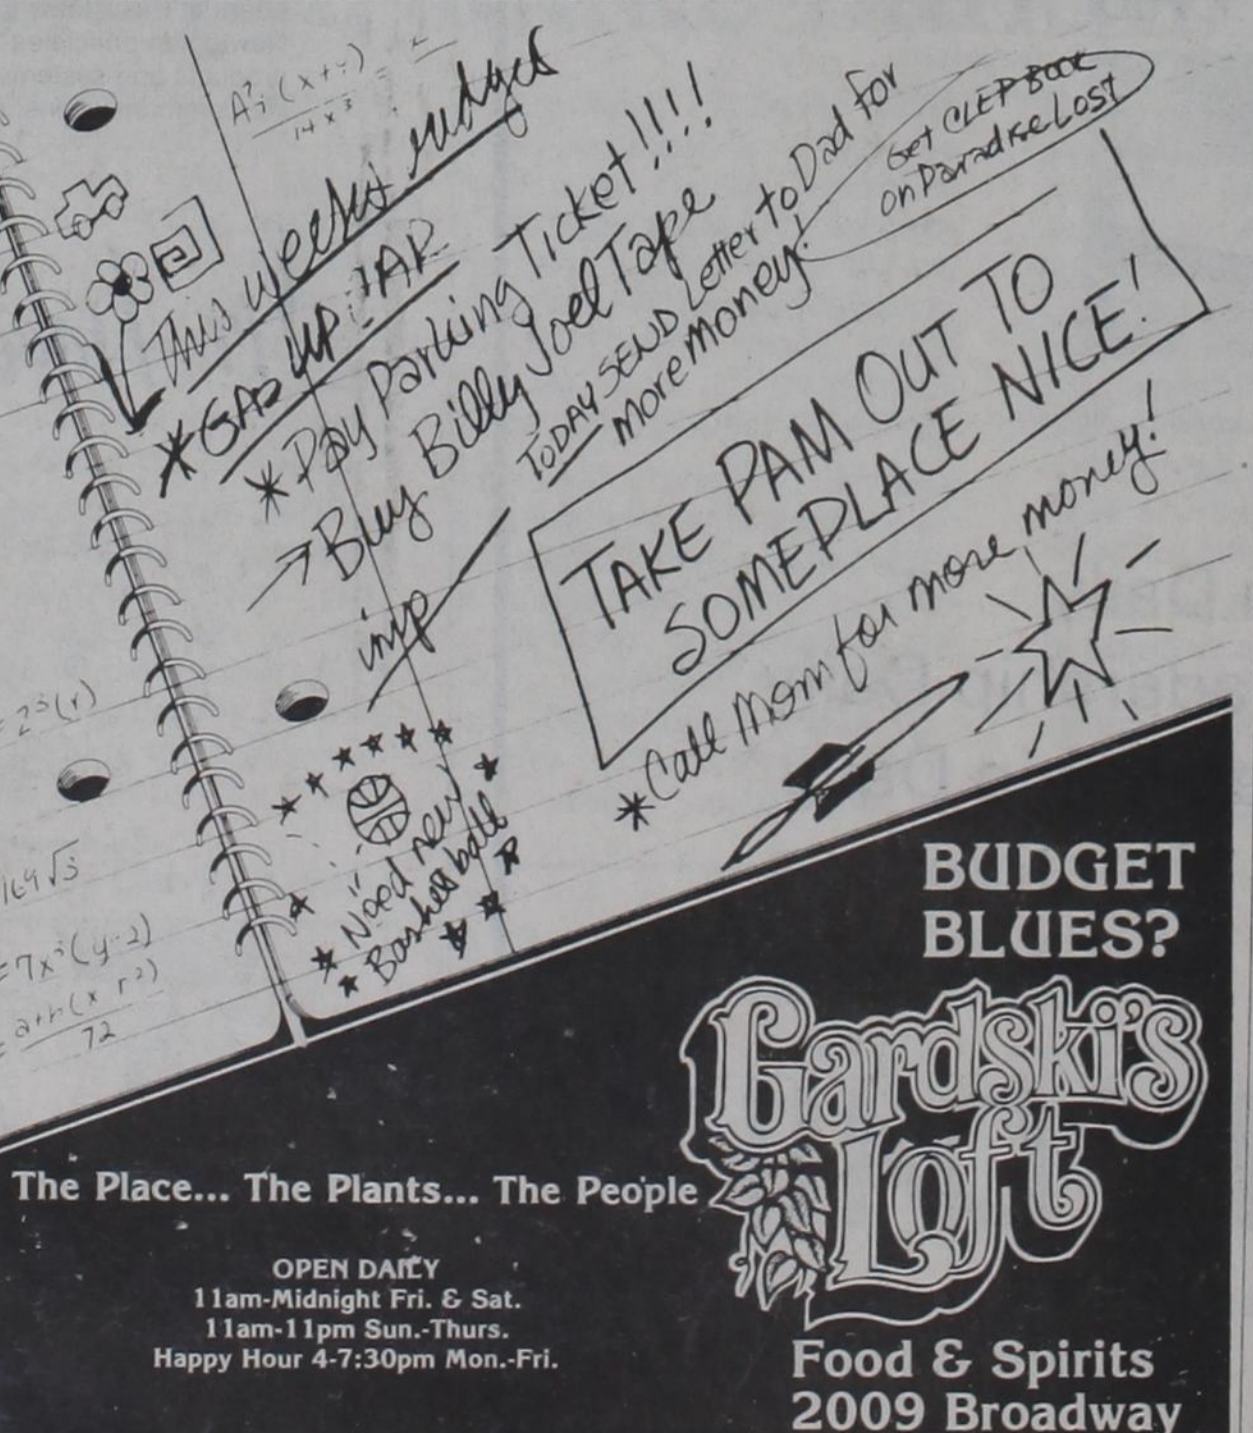 This weeks budget
* GAS UP CAR
* Pay Parking Ticket!!!!
→ Buy Billy Joel Tape
TODAY SEND Letter to Dad for
more money!
Get CLEP BOOK
on Paradise Lost
imp
TAKE PAM OUT TO
SOMEPLACE NICE!
* Call Mom for more money!
* Need new
* Basketball
= 2³(r)
169√3
= 7x³(y-2)
72
14x³
BUDGET
BLUES?
Gardski's
Loft
The Place... The Plants... The People
OPEN DAILY
11am-Midnight Fri. & Sat.
11am-11pm Sun.-Thurs.
Happy Hour 4-7:30pm Mon.-Fri.
Food & Spirits
2009 Broadway